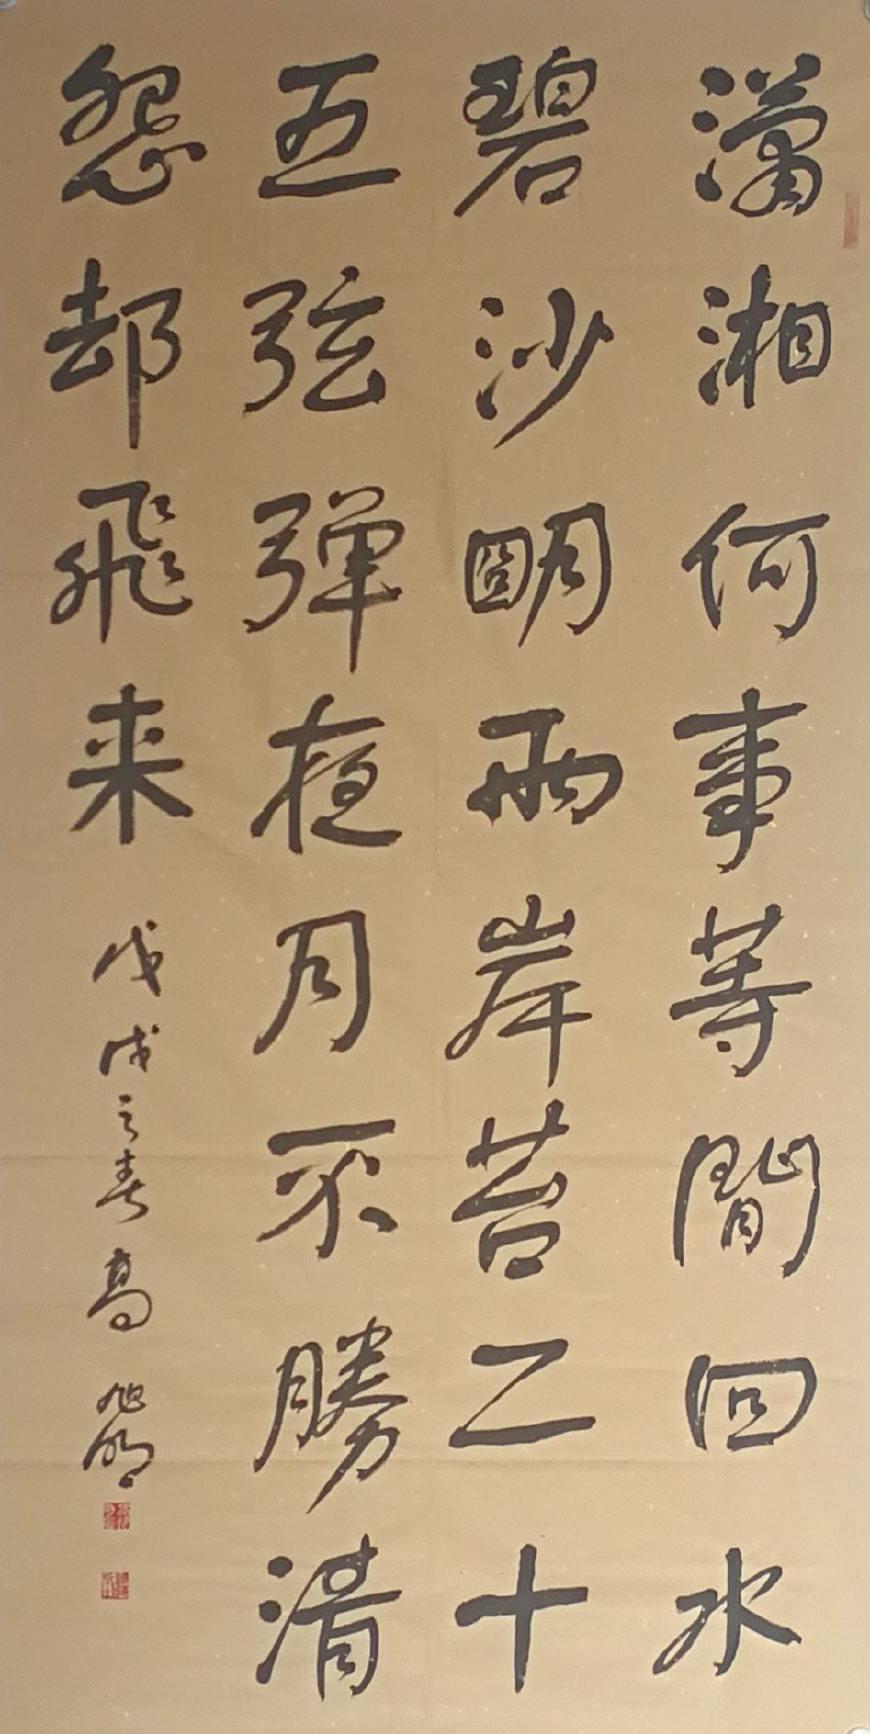 潇湘何事等閒回水
碧沙明两岸苔二十
五弦弹夜月不勝清
怨却飛来
戊戌之春高旭明